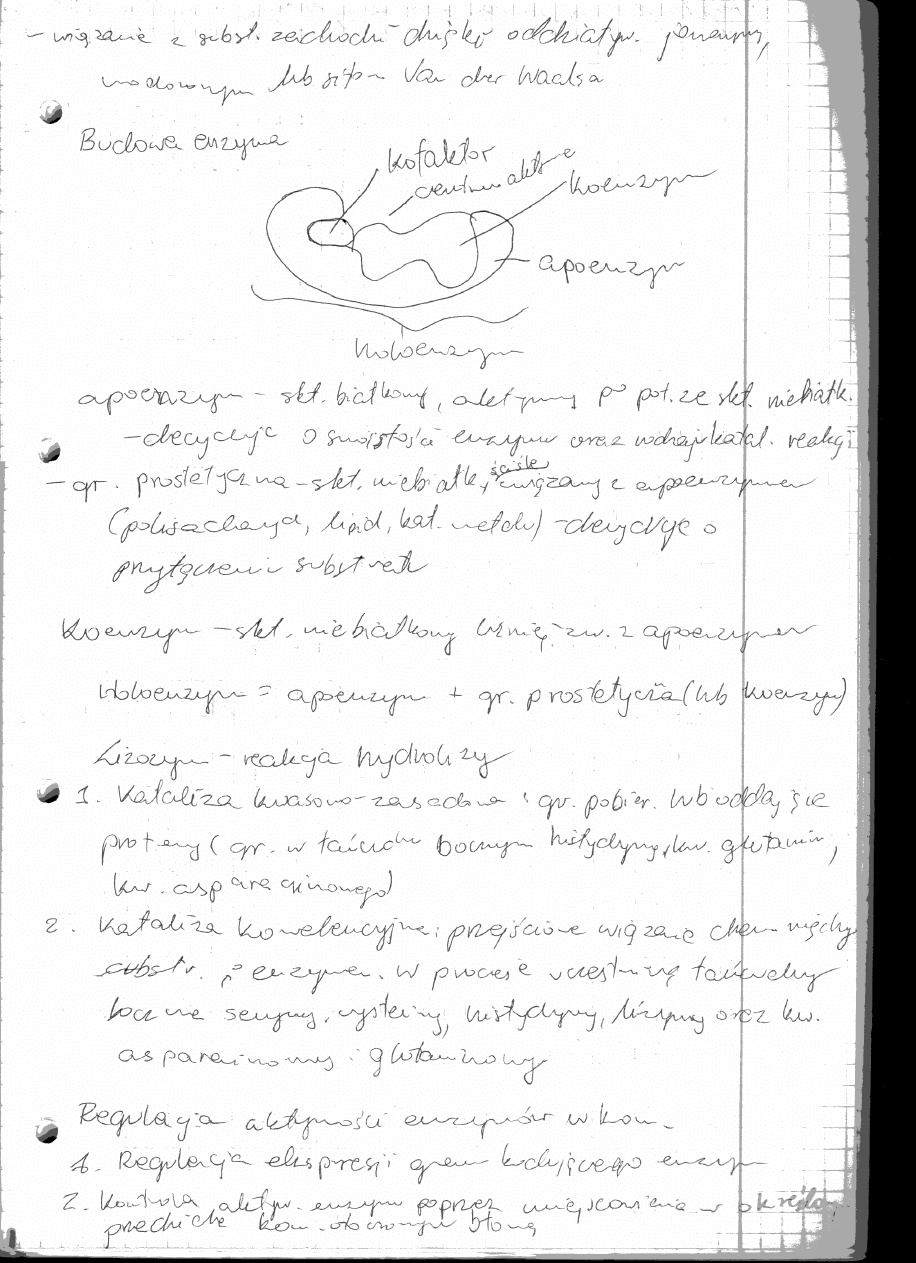 - wiązanie z subst. zachodzi dzięki oddziaływ. jonowym,
wodorowym lub siłom Van der Waalsa
Budowa enzymu
kofaktor
centrum aktywne
koenzym
apoenzym
holoenzym
apoenzym - skł. białkowy, aktywny po poł. ze skł. niebiałk.
- decyduje o swoistości enzymu oraz rodzaju katal. reakcji
- gr. prostetyczna - skł. niebiałk., ściśle związany z apoenzymem
(polisacharyd, lipid, kat. metalu) - decyduje o
przyłączeniu substratu
Koenzym - skł. niebiałkowy luźniej zw. z apoenzymem
Holoenzym = apoenzym + gr. prostetyczna (lub koenzym)
Lizozym - reakcja hydrolizy
1. Kataliza kwasowo-zasadowa: gr. pobier. lub oddają się
protony (gr. w łańcuchu bocznym histydyny, kw. glutamin,
kw. asparaginowego)
2. Kataliza kowalencyjna: przejściowe wiązanie chem między
substr. i enzymem. W procesie uczestniczą łańcuchy
boczne seryny, cysteiny, histydyny, lizyny oraz kw.
asparaginowy i glutaminowy
Regulacja aktywności enzymów w kom.
1. Regulacja ekspresji genu kodującego enzym
2. Kontrola aktyw. enzymu poprzez umiejscowienie w określon
przedziale kom. otoczonym błoną